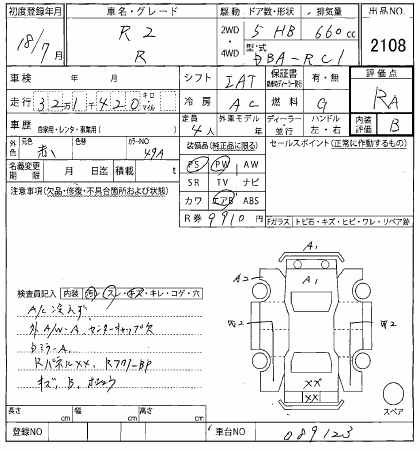 初度登録年月 車名・グレード 駆動 ドア数・形状 排気量 出品NO.
18/7月 R2 R 2WD 4WD 5 HB 660cc 2108
型式 DBA-RC1
車検 年 月 シフト IAT 保証書 有・無 評価点
走行 キロ マイル 冷房 AC 燃料 G RA
車歴 自家用・レンタ・事業用( ) 定員 4人 外車モデル 年 ディーラー・並行 ハンドル 左・右 内装評価 B
外色 元色 赤 色替 カラーNO 49A 装備品(純正品に限る) セールスポイント(正常に作動するもの)
名義変更期限 月 日迄 積載 t PS PW AW
注意事項(欠品・修復・不具合箇所および状態) SR TV ナビ
カワ エアB ABS
R券 9910円 Fガラス トビ石・キズ・ヒビ・ワレ・リペア跡
A1
A1
A2
検査員記入 内装 汚レ・スレ・キズ・キレ・コゲ・穴
外A/W-A センターキャップ欠
W2 W2
RパネルXX
XX
XX
スペア
長さ cm 幅 cm 高さ cm
登録NO 車台NO 089123